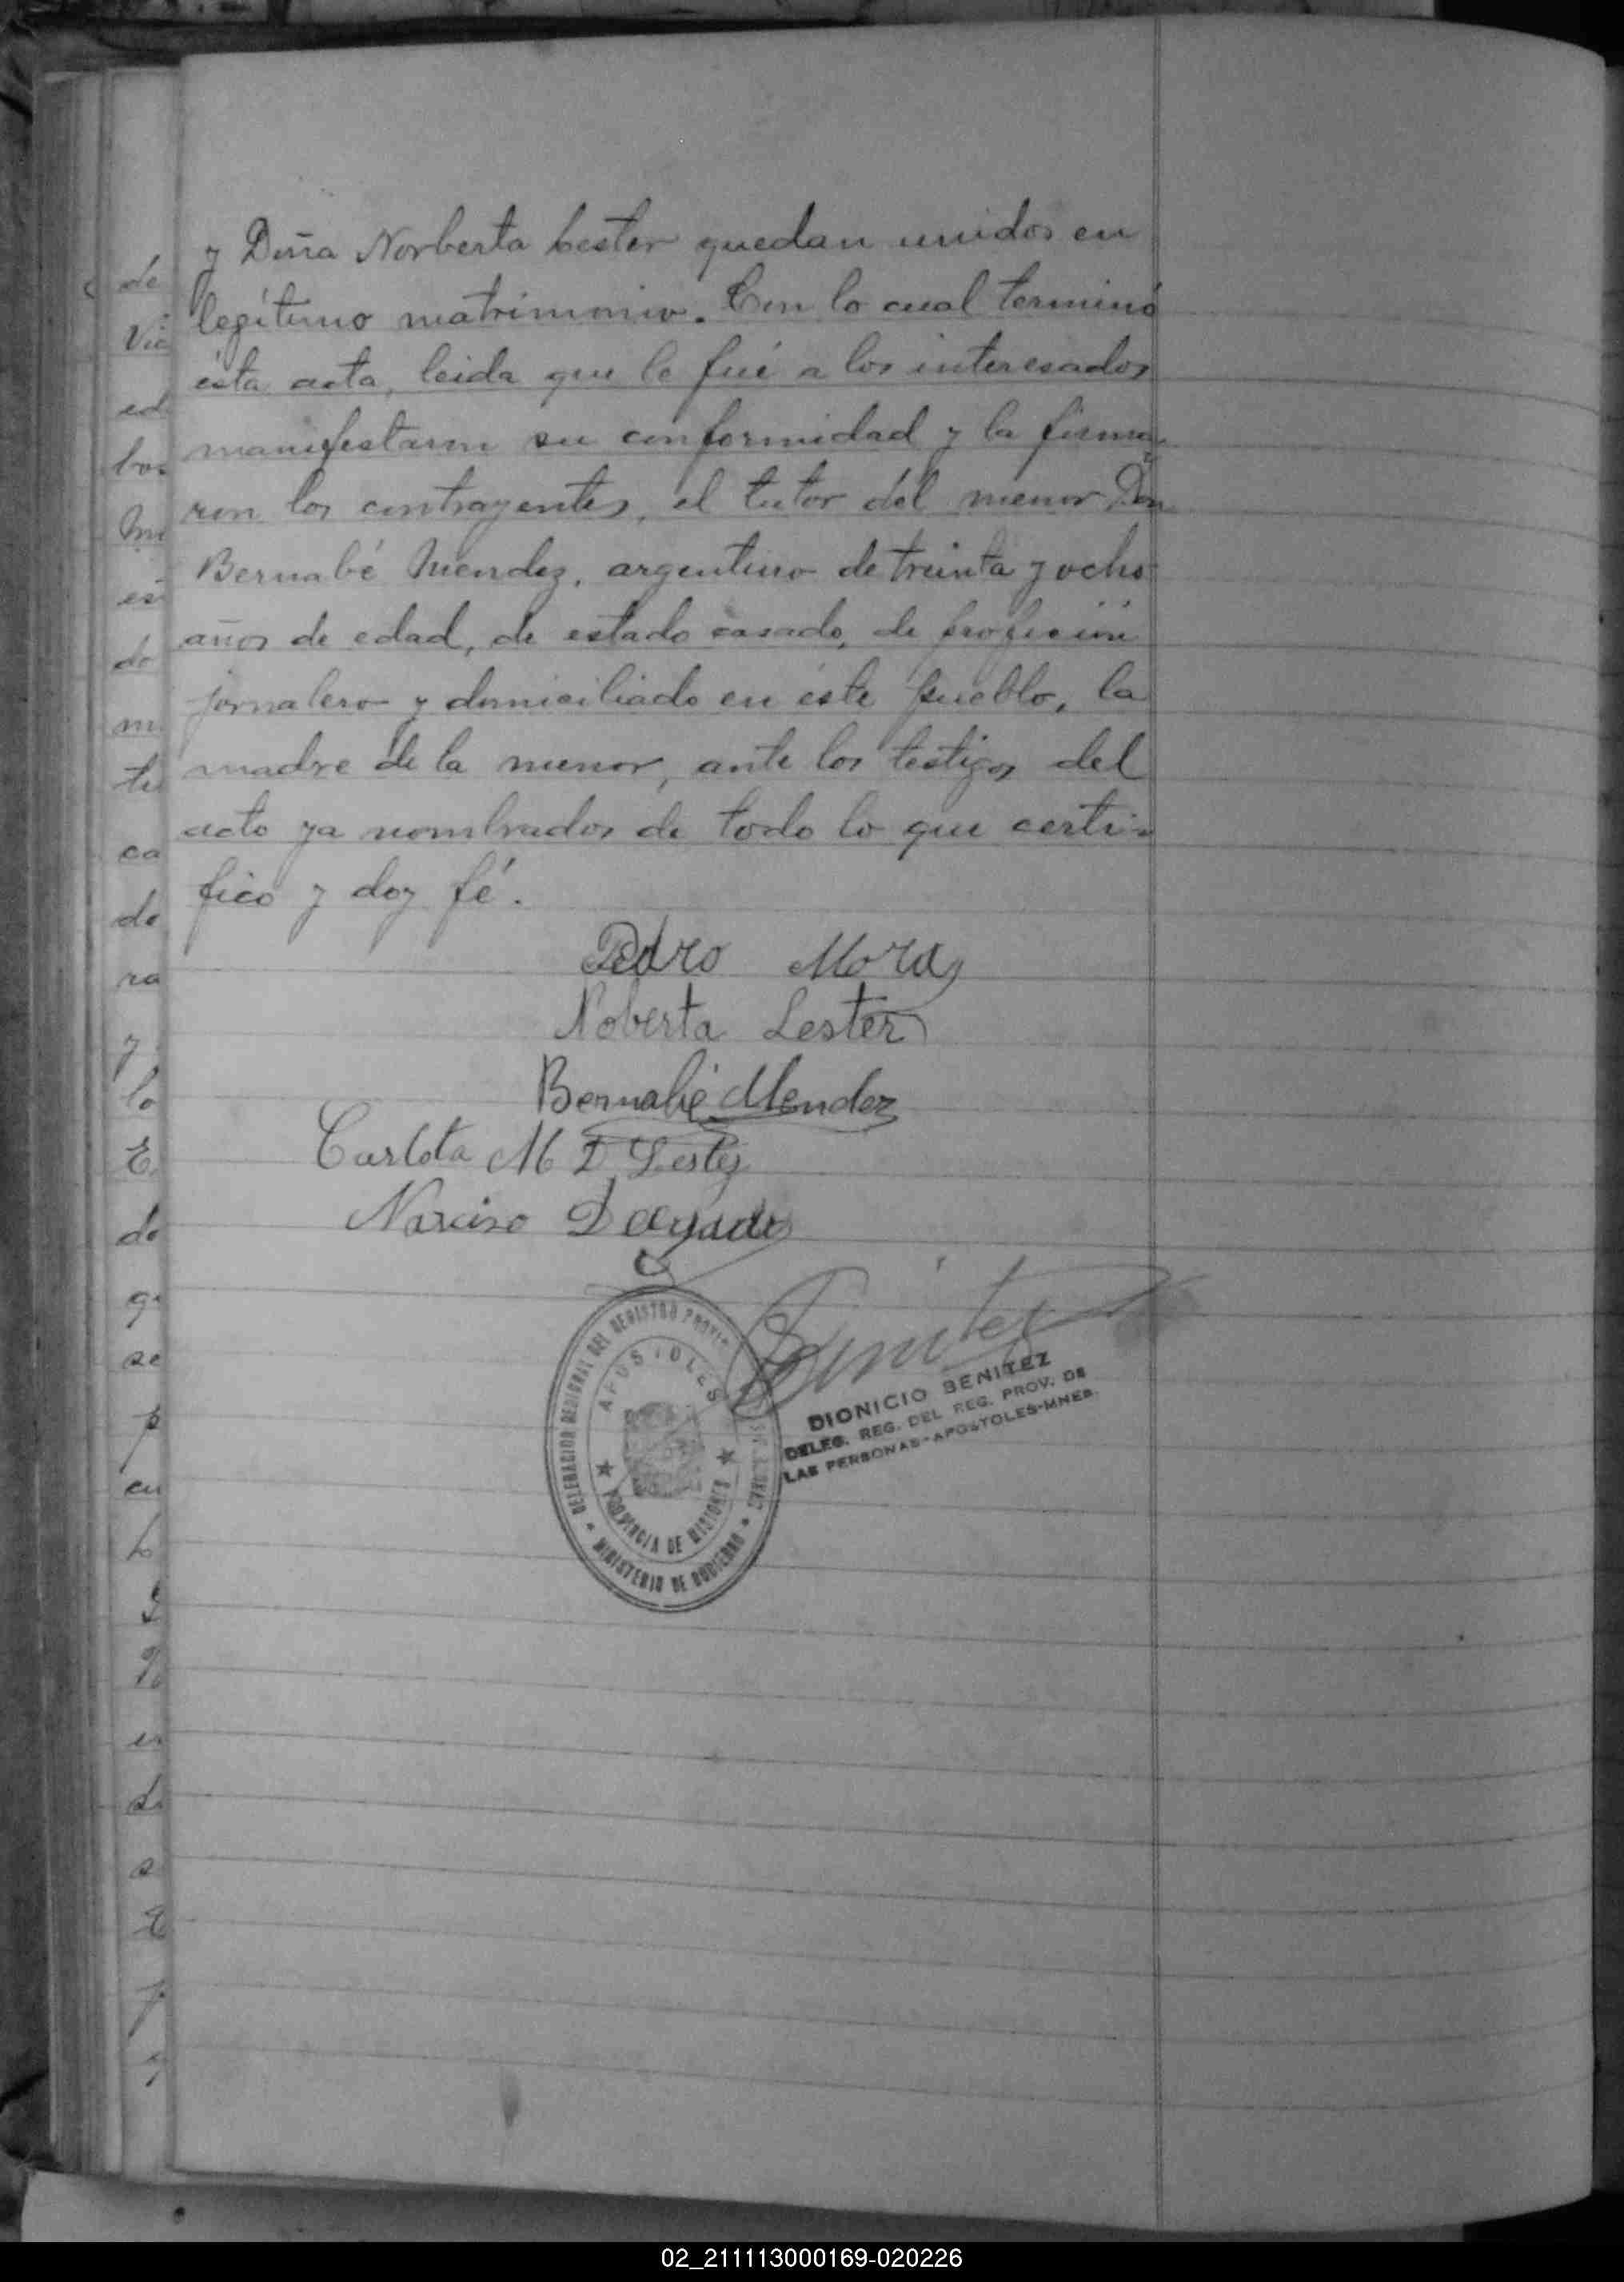 y Doña Norberta Lester quedan unidos en
legítimo matrimonio. Con lo cual terminó
ésta acta, leida que le fué a los interesados
manifestaron su conformidad y la firma-
ron los contrayentes, el tutor del menor Don
Bernabé Mendez, argentino de treinta y ocho
años de edad, de estado casado, de profeción
jornalero y domiciliado en éste pueblo, la
madre de la menor, ante los testigos del
acto ya nombrados de todo lo que certi-
fico y doy fé.
Pedro Mora
Noberta Lester
Bernabé Mendez
Carlota M D Lester
Narciso
Benitez
DELEGACION REGIONAL DEL REGISTRO PROVIN
APOSTOLES
PROVINCIA DE MISIONES
MINISTERIO DE GOBIERNO
DIONICIO BENITEZ
DELEG. REG. DEL REG. PROV. DE
LAS PERSONAS-APOSTOLES-MNES.
de
Vic
ed
bos
Mi
es
do
m
te
ca
do
ra
y
lo
E
do
q
se
p
en
L
en
s
E
p
y
02_211113000169-020226